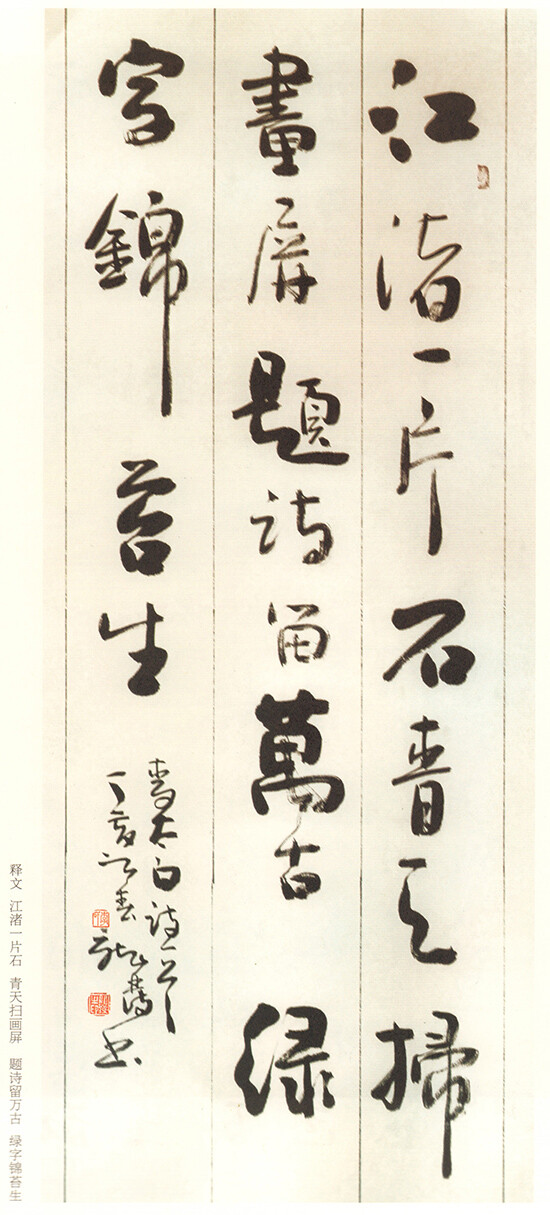 江渚一片石青天掃
畫屏題詩留萬古綠
字錦苔生
李太白詩一首
丁亥初春
释文 江渚一片石 青天扫画屏 题诗留万古 绿字锦苔生